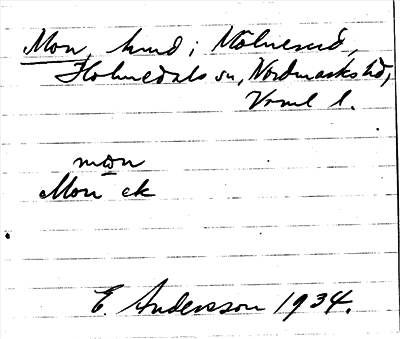 Mon, hmd i Mölnerud,
Holmedals sn, Nordmarks hd,
Vrml l.
mωn
Mon ek
E. Andersson 1934.